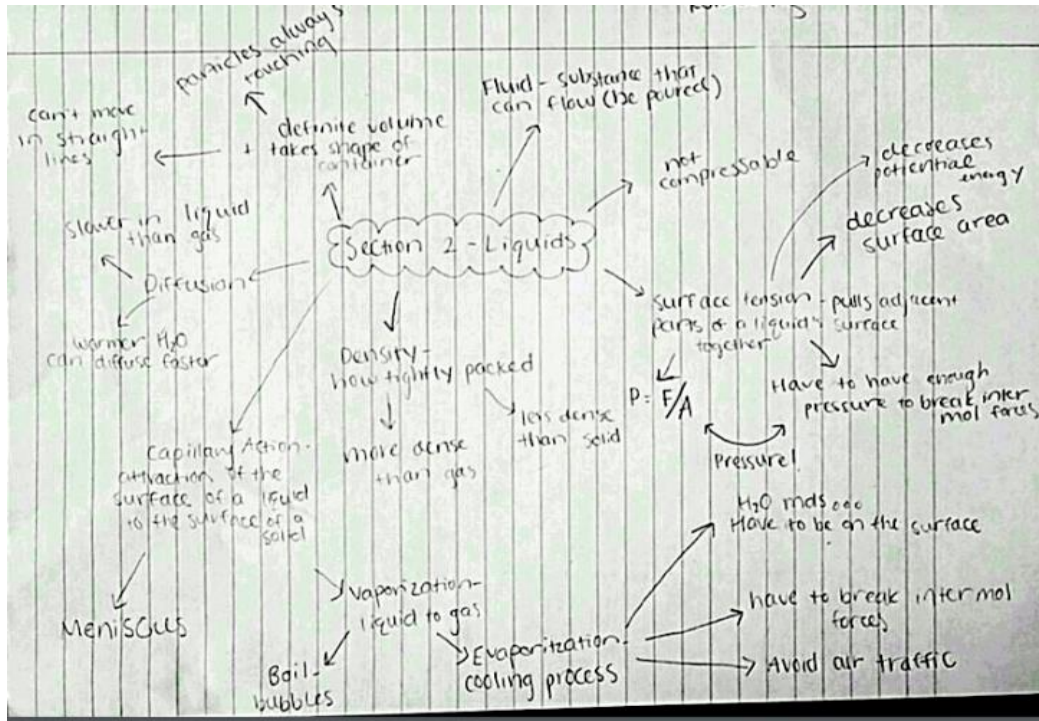 particles always
touching
can't move
in straight
lines
definite volume
takes shape of
container
Fluid - substance that
can flow (be poured)
not
compressable
decreases
potiential
energy
decreases
surface area
Section 2 - Liquids
slower in liquid
than gas
Diffusion
warmer H₂O
can diffuse faster
surface tension - pulls adjacent
parts of a liquids surface
together
P = F/A
Have to have enough
pressure to break inter
mol forces
Pressure!
Density -
how tightly packed
less dense
than solid
more dense
than gas
Capillary Action -
attraction of the
surface of a liquid
to the surface of a
solid
MENISCUS
Vaporization -
liquid to gas
Boil -
bubbles
Evaporitzation -
cooling process
H₂O mols...
Have to be on the surface
have to break intermol
forces
Avoid air traffic